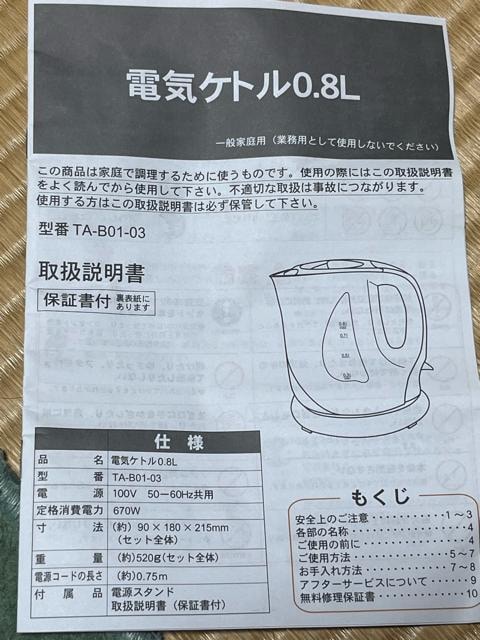 電気ケトル0.8L
一般家庭用（業務用として使用しないでください）
この商品は家庭で調理するために使うものです。使用の際にはこの取扱説明書
をよく読んでから使用して下さい。不適切な取扱は事故につながります。
使用する方はこの取扱説明書は必ず保管して下さい。
型番 TA-B01-03
取扱説明書
保証書付 裏表紙に
あります
仕様
品名 電気ケトル0.8L
型番 TA-B01-03
電源 100V 50ー60Hz共用
定格消費電力 670W
寸法 (約) 90×180×215mm
(セット全体)
重量 (約)520g(セット全体)
電源コードの長さ (約)0.75m
付属品 電源スタンド
取扱説明書（保証書付）
もくじ
安全上のご注意・・・・・・・1～3
各部の名称・・・・・・・・・・4
ご使用の前に・・・・・・・・・4
ご使用方法・・・・・・・・・5～7
お手入れ方法・・・・・・・・7～8
アフターサービスについて・・・・9
無料修理保証書・・・・・・・・10